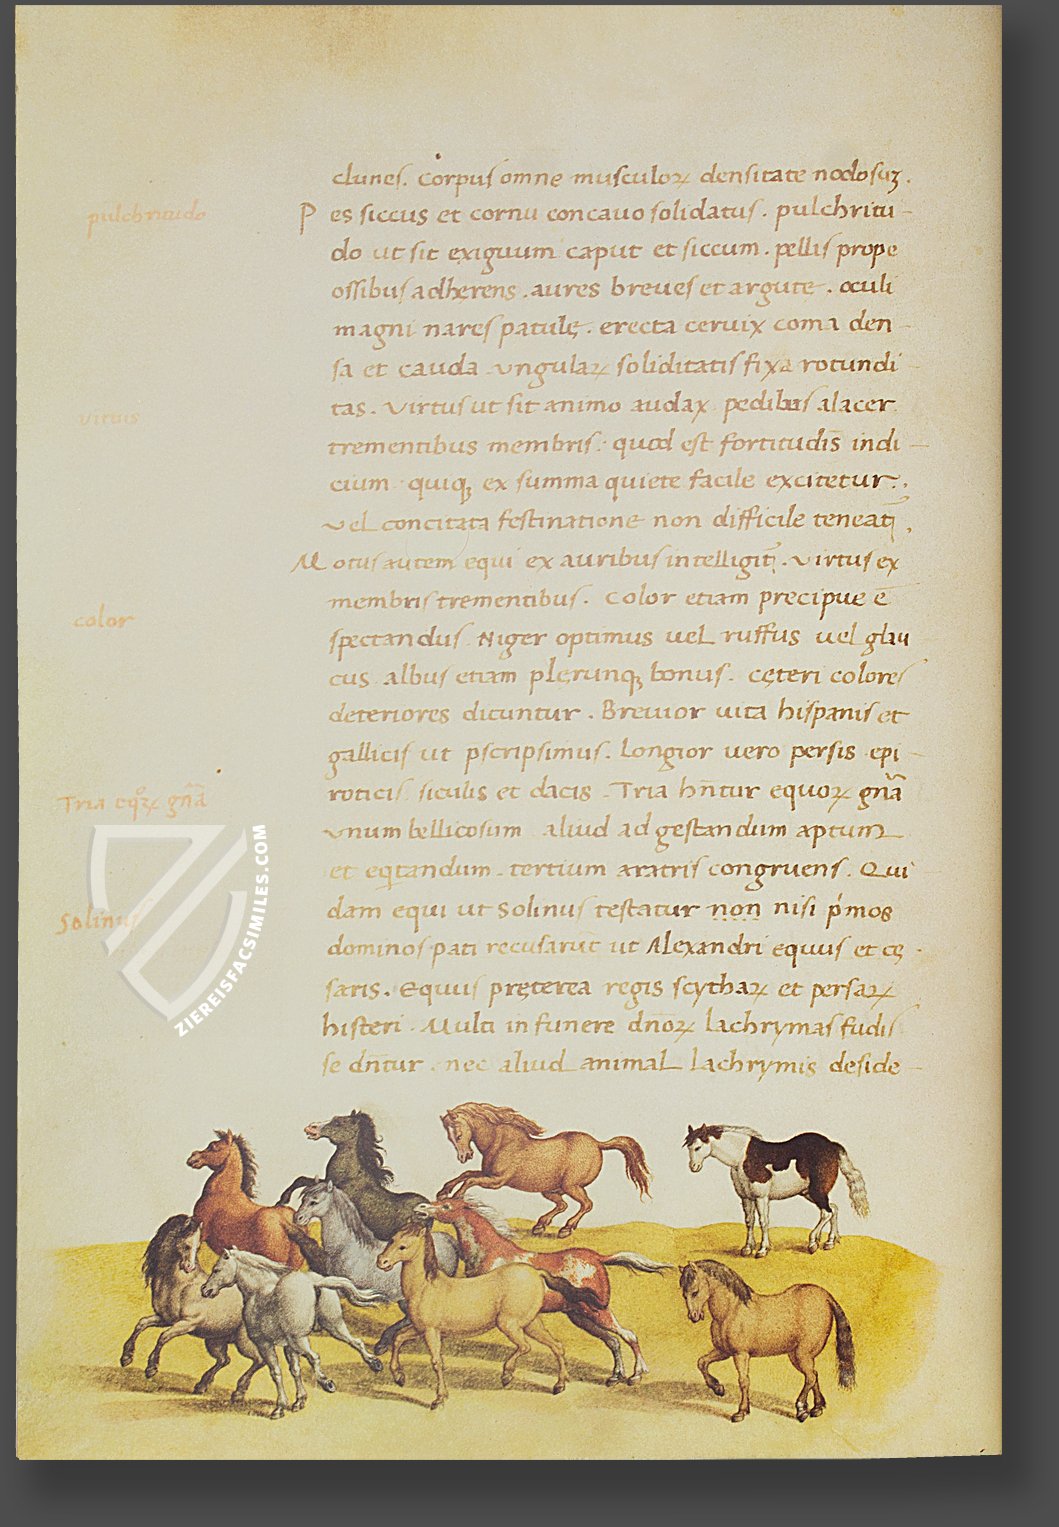 clunes. Corpus omne musculoꝝ densitate nodosuꝫ.
pulchritudo
Pes siccus et cornu concauo solidatus. pulchritu-
do ut sit exiguum caput et siccum. pellis prope
ossibus adherens. aures breues et argute. oculi
magni nares patulę. erecta ceruix coma den-
sa et cauda. ungulaꝝ soliditatis fixa rotundi-
tas. Virtus ut sit animo audax pedibus alacer
virtus
trementibus membris. quod est fortitudīs indi-
cium. quiqꝫ ex summa quiete facile excitetur.
Vel concitata festinatione non difficile teneat᷑,
Motus autem equi ex auribus intelligit᷑. Virtus ex
membris trementibus. Color etiam precipue ē
color
spectandus. Niger optimus uel ruffus uel glau
cus albus etiam plerunqꝫ bonus. cęteri colores
deteriores dicuntur. Breuior uita hispanis et
gallicis ut pscripsimus. longior uero persis epi-
roticis siculis et dacis. Tria hn̄tur equoꝝ gn̄a
Tria eqͦꝝ gn̄a
Vnum bellicosum aliud ad gestandum aptum
et eqtandum. tertium aratris congruens. Qui-
dam equi ut Solinus testatur non nisi pⁱmos
Solinus
dominos pati recusarūt ut Alexandri equus et cę-
saris. Equus pręterea regis scythaꝝ et persaꝝ
histeri. Multi in funere dn̄oꝝ lachrymas fudis
se dn̄tur. nec aliud animal lachrymis deside-
ZIEREISFACSIMILES.COM